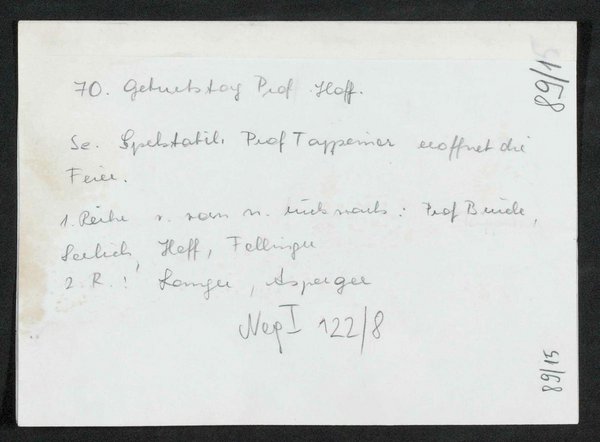 70. Geburtstag Prof Hoff.
Se. Spektabil. Prof Tappeiner eröffnet die
Feier.
1. Reihe v. vorn n. rückwärts: Prof
Seelich, Hoff, Fellinger
2. R.: Asperger
Neg I 122/8
89/15
89/15